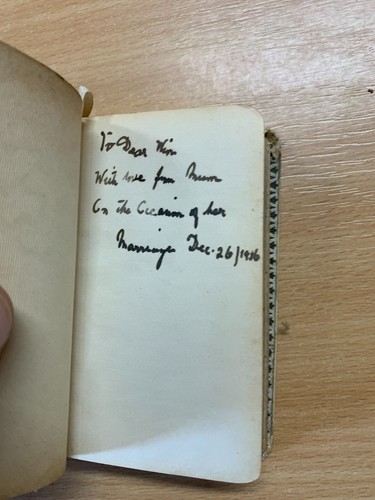 To Dear Win
With love from Mum
On the Occasion of her
Marriage Dec. 26/1936